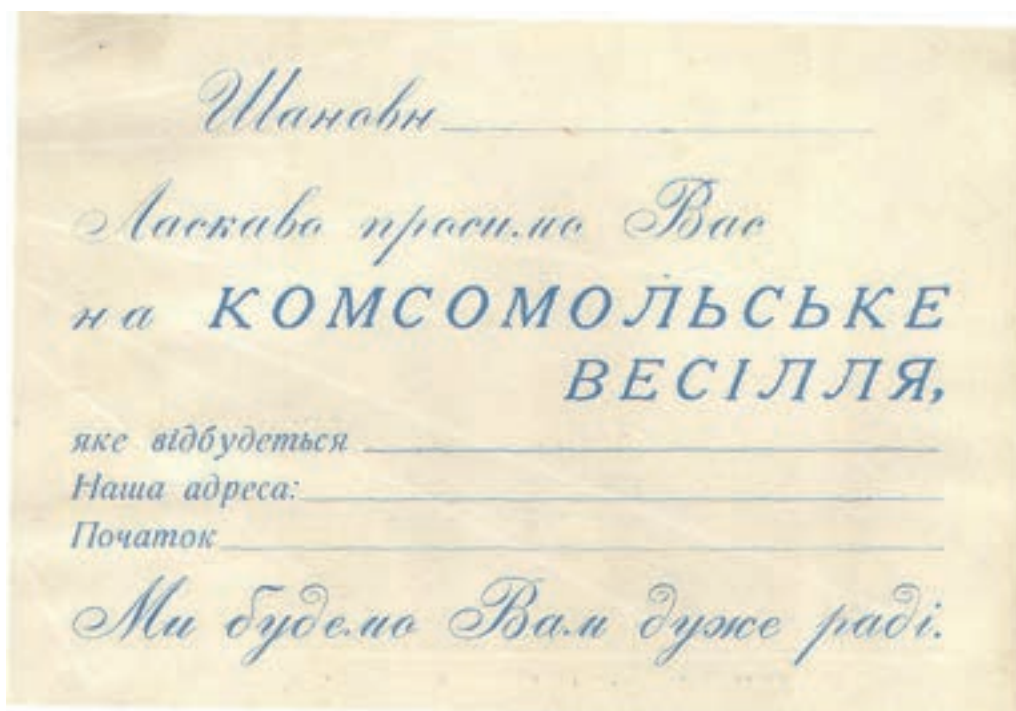 Шановн
Ласкаво просимо Вас
на КОМСОМОЛЬСЬКЕ
ВЕСІЛЛЯ,
яке відбудеться
Наша адреса:
Початок
Ми будемо Вам дуже раді.